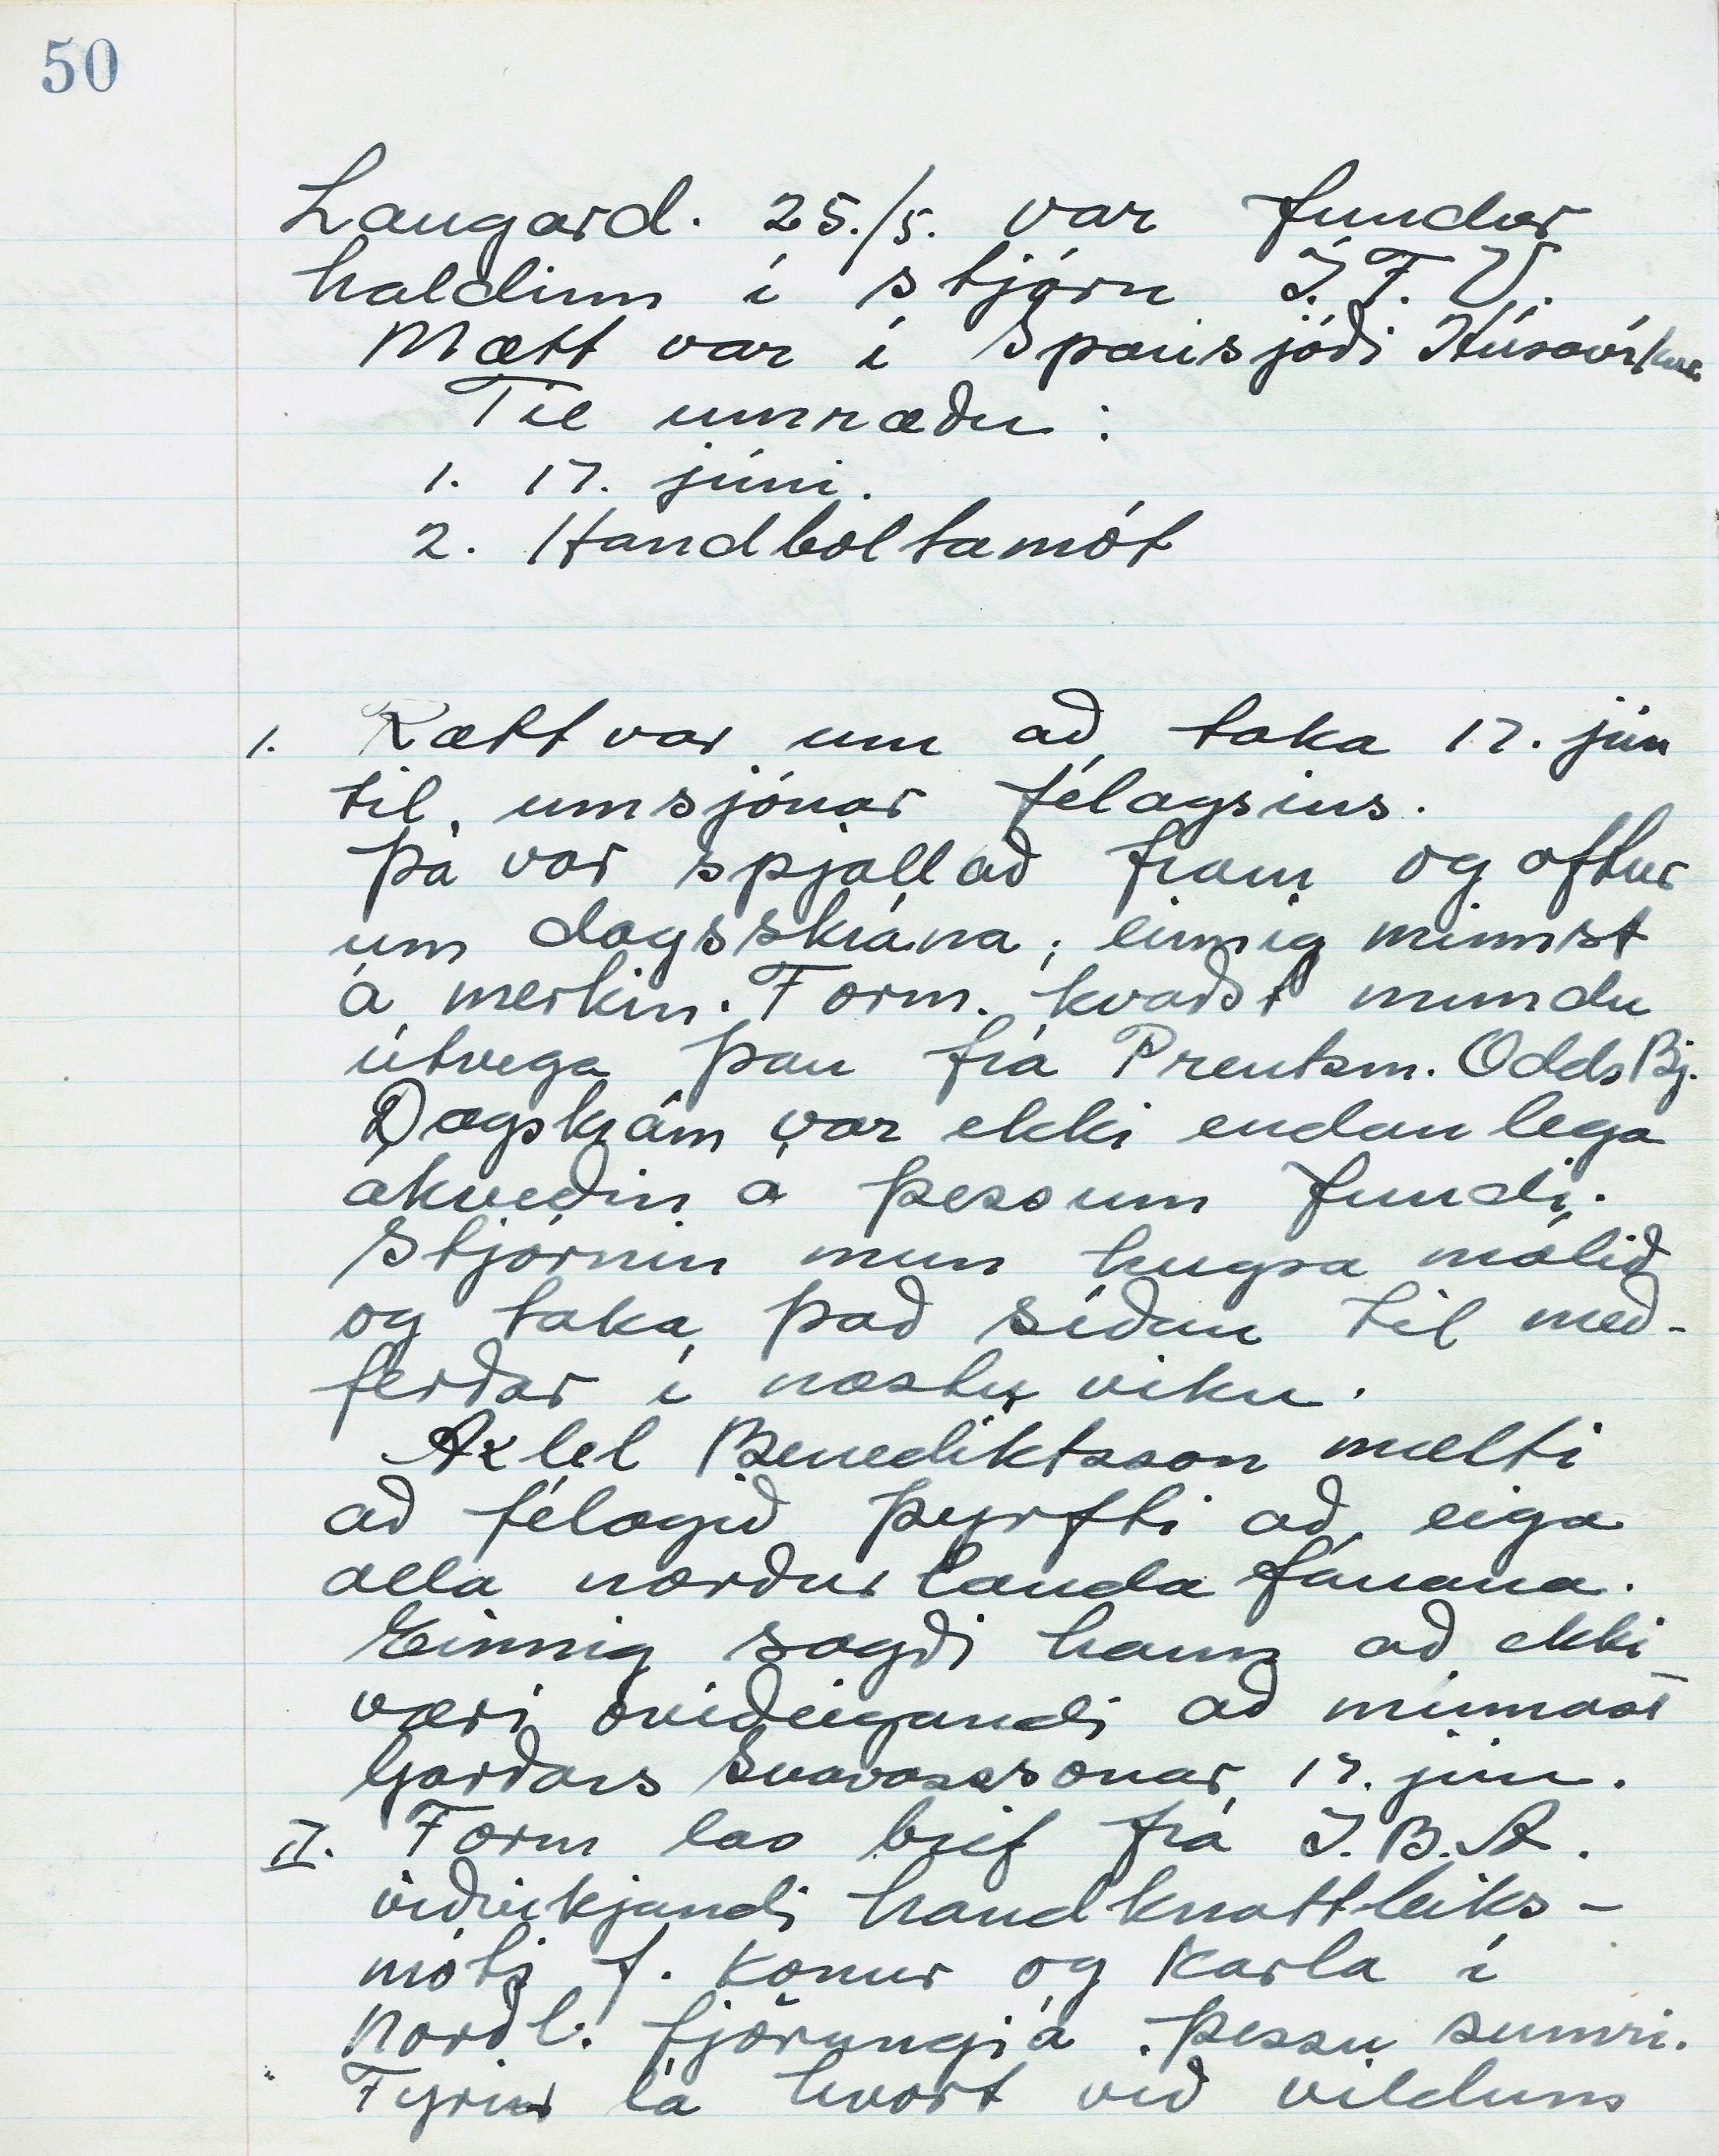 50
Laugard. 25./5. var fundur
haldinn í stjórn Í.F.V.
Mætt var í Sparisjóði Húsavíkur
Til umræðu:
1. 17. júni.
2. Handboltamót
1. Rætt var um að taka 17. jún
til umsjónar félagsins.
Þá var spjallað fram og aftur
um dagsskrána, einnig minnst
á merkin. Form. kvaðst mundu
útvega þau frá Prentsm. Odds Bj.
Dagskráin var ekki endanlega
ákveðin á þessum fundi.
Stjórnin mun hugsa málið
og taka það síðan til með-
ferðar í næstu viku.
Axlel Benediktsson mælti
að félagið þyrfti að eiga
alla norðurlanda fánana.
Einnig sagði hann að ekki
væri óviðeigandi að minnast
Garðars Svavarssonar 17. jún.
II. Form las bréf frá Í.B.A.
viðvíkjandi handknattleiks-
móti f. konur og karla í
Norðl. fjórungi á þessu sumri.
Fyrir lá hvort við vildum